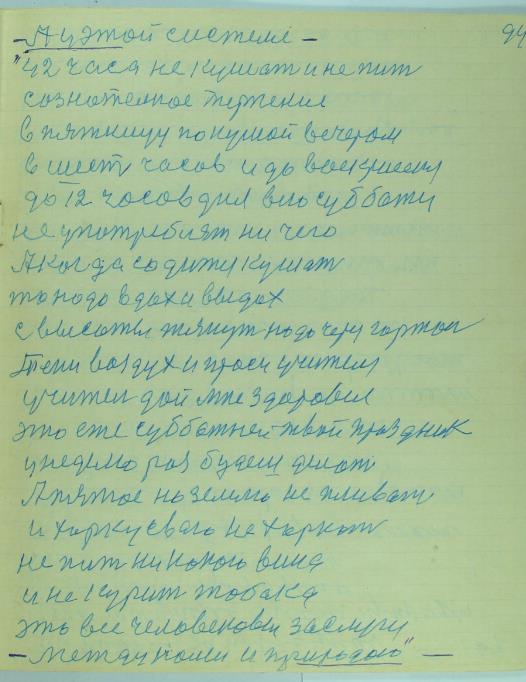 94
– А у этой системе –
"42 часа не кушат и не пит
сознателное терпение
в пятницу покушой вечером
в шест часов и до воскрисеня
до 12 часов дня всю субботу
не употреблят ни чего
А когда содиш кушат
то надо вдох и выдох
с высоты тянут надо чере гортон
Тени воздух и проси учителя
учител дай мне здоровия
это еже субботней твой праздник
у неделю раз будеш делат
А пятое на землю не пливат
и харку свого не харкат
не пит ни какого вина
и не курит тобака
это все человекови заслуги
– Между нами и природою" –